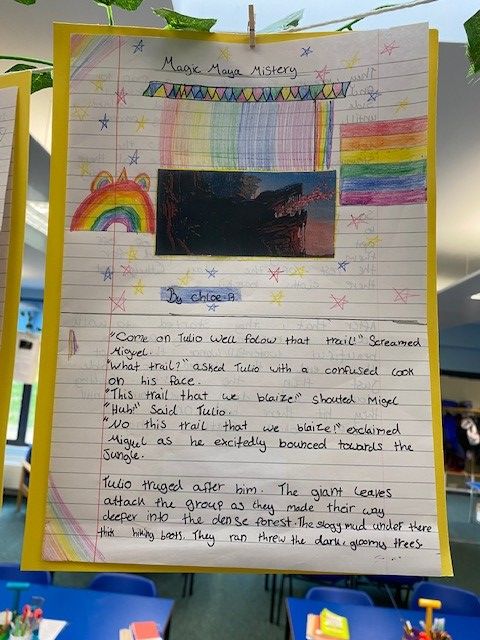 Magic Maya Mistery
By chloe.B
"Come on Tulio well folow that trail!" Screamed
Miguel.
"What trail?" asked Tulio with a confused look
on his face.
"This trail that we blaize!" shouted Migel
"Huh?" Said Tulio.
"No this trail that we blaize!" exclaimed
Miguel as he excitedly bounced towards the
Jungle.
Tulio truged after him. The giant leaves
attack the group as they made their way
deeper into the dense forest. The sloggy mud under there
thik hiking boots. They ran threw the dark, gloomy trees.